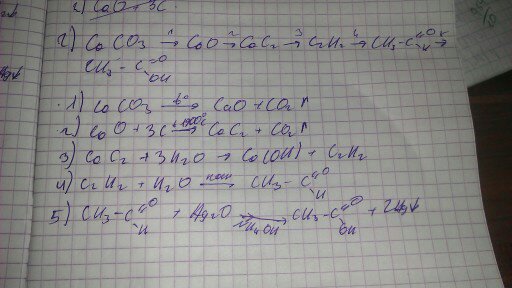 CaO + 3C
2) CaCO3 →1 CaO →2 CaC2 →3 C2H2 →4 CH3-C=O H →
CH3-C=O OH
1) CaCO3 →t° CaO + CO2↑
2) CaO + 3C → CaC2 + CO2↑
3) CaC2 + 3H2O → Ca(OH) + C2H2
4) C2H2 + H2O → CH3-C=O H
5) CH3-C=O H + Ag2O →NH4OH CH3-C=O OH + 2Ag↓